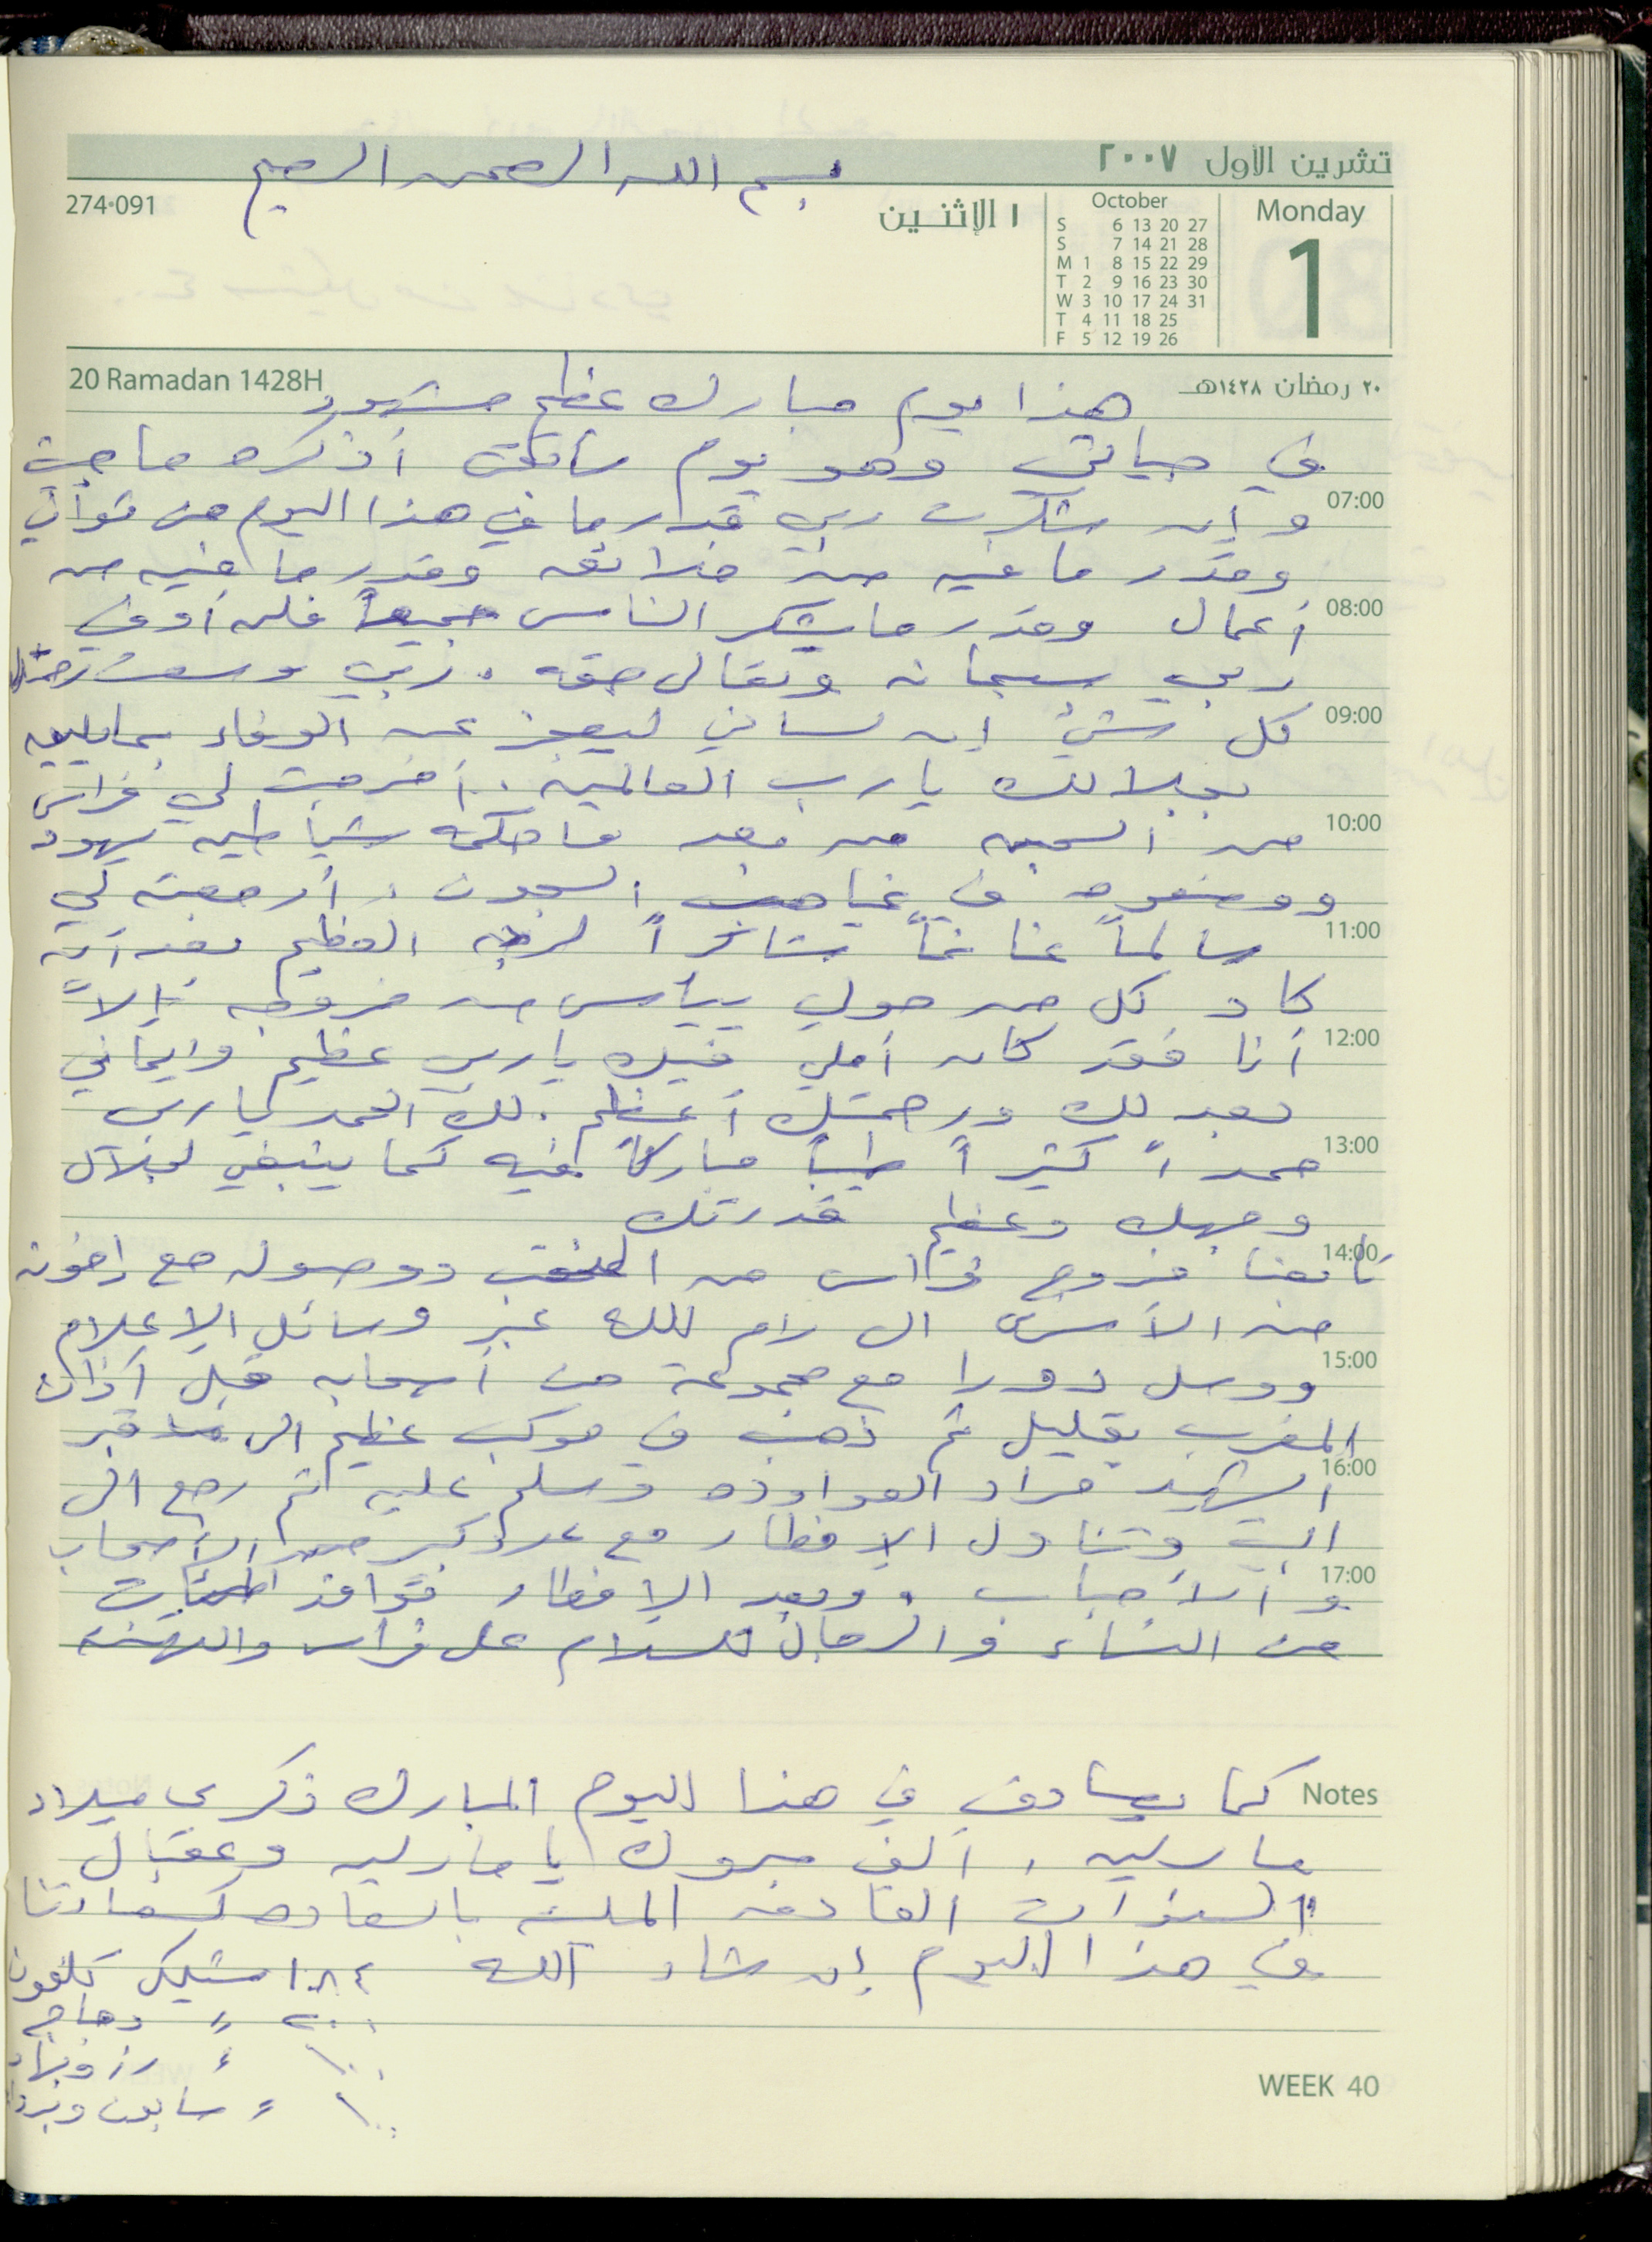 تشرين الأول ٢٠٠٧
بسم الله الرحمن الرحيم
274•091
١ الإثنين
October
S 6 13 20 27
S 7 14 21 28
M 1 8 15 22 29
T 2 9 16 23 30
W 3 10 17 24 31
T 4 11 18 25
F 5 12 19 26
Monday
1
20 Ramadan 1428H
٢٠ رمضان ١٤٢٨هـ
هذا يوم مبارك عظيم مشهود
في حياتي وهو يوم سأبقى أذكره ما حييت
07:00 وإن شكرت ربي قدر ما في هذا اليوم من ثوان
وقدر ما فيه من خلائق وقدر ما فيه من
08:00 أعمال وقدر ما يشكر الناس جميعاً فلن أوفي
ربي سبحانه وتعالى حقه. ربي وسعت رحمتك
09:00 كل شيء إن لساني ليعجز عن الوفاء بما يليق
بجلالك يا رب العالمين. أخرجت لي فراس
10:00 من السجن من بعد ما حكمه شياطين يهود
ووضعوه في غياهب السجون، أرجعته لي
11:00 سالماً غانماً شاكراً لربه العظيم بعد أن
كاد كل من حولي ييأس من خروجه إلا
12:00 أنا فقد كان أملي فيك يا ربي عظيم وإيماني
بعدلك ورحمتك أعظم. لك الحمد يا رب
13:00 حمداً كثيراً طيباً مباركاً فيه كما ينبغي لجلال
وجهك وعظيم قدرتك
14:00 تابعنا خروج فراس من النقب ووصوله مع إخوته
من الأسرى الى رام الله عبر وسائل الإعلام
15:00 ووصل دورا مع مجموعة من أصحابه قبل آذان
المغرب بقليل ثم ذهب في موكب عظيم الى قبر
16:00 الشهيد مراد العواوده وسلم عليه ثم رجع الى
البيت وتناول الإفطار مع عدد كبير من الأصحاب
17:00 والأحباب، وبعد الإفطار توافد المئات
من النساء والرجال للسلام على فراس والتهنئة
Notes كما يصادف في هذا اليوم المبارك ذكرى ميلاد
مارلين، ألف مبروك يا مارلين وعقبال
السنوات القادمة المليئة بالسعادة كسعادتنا
في هذا اليوم إن شاء الله
١٠٨٤ شيكل تلفون
٢٠٠ " دجاج
١٠٠ " رز
١٠٠ " صابون
WEEK 40